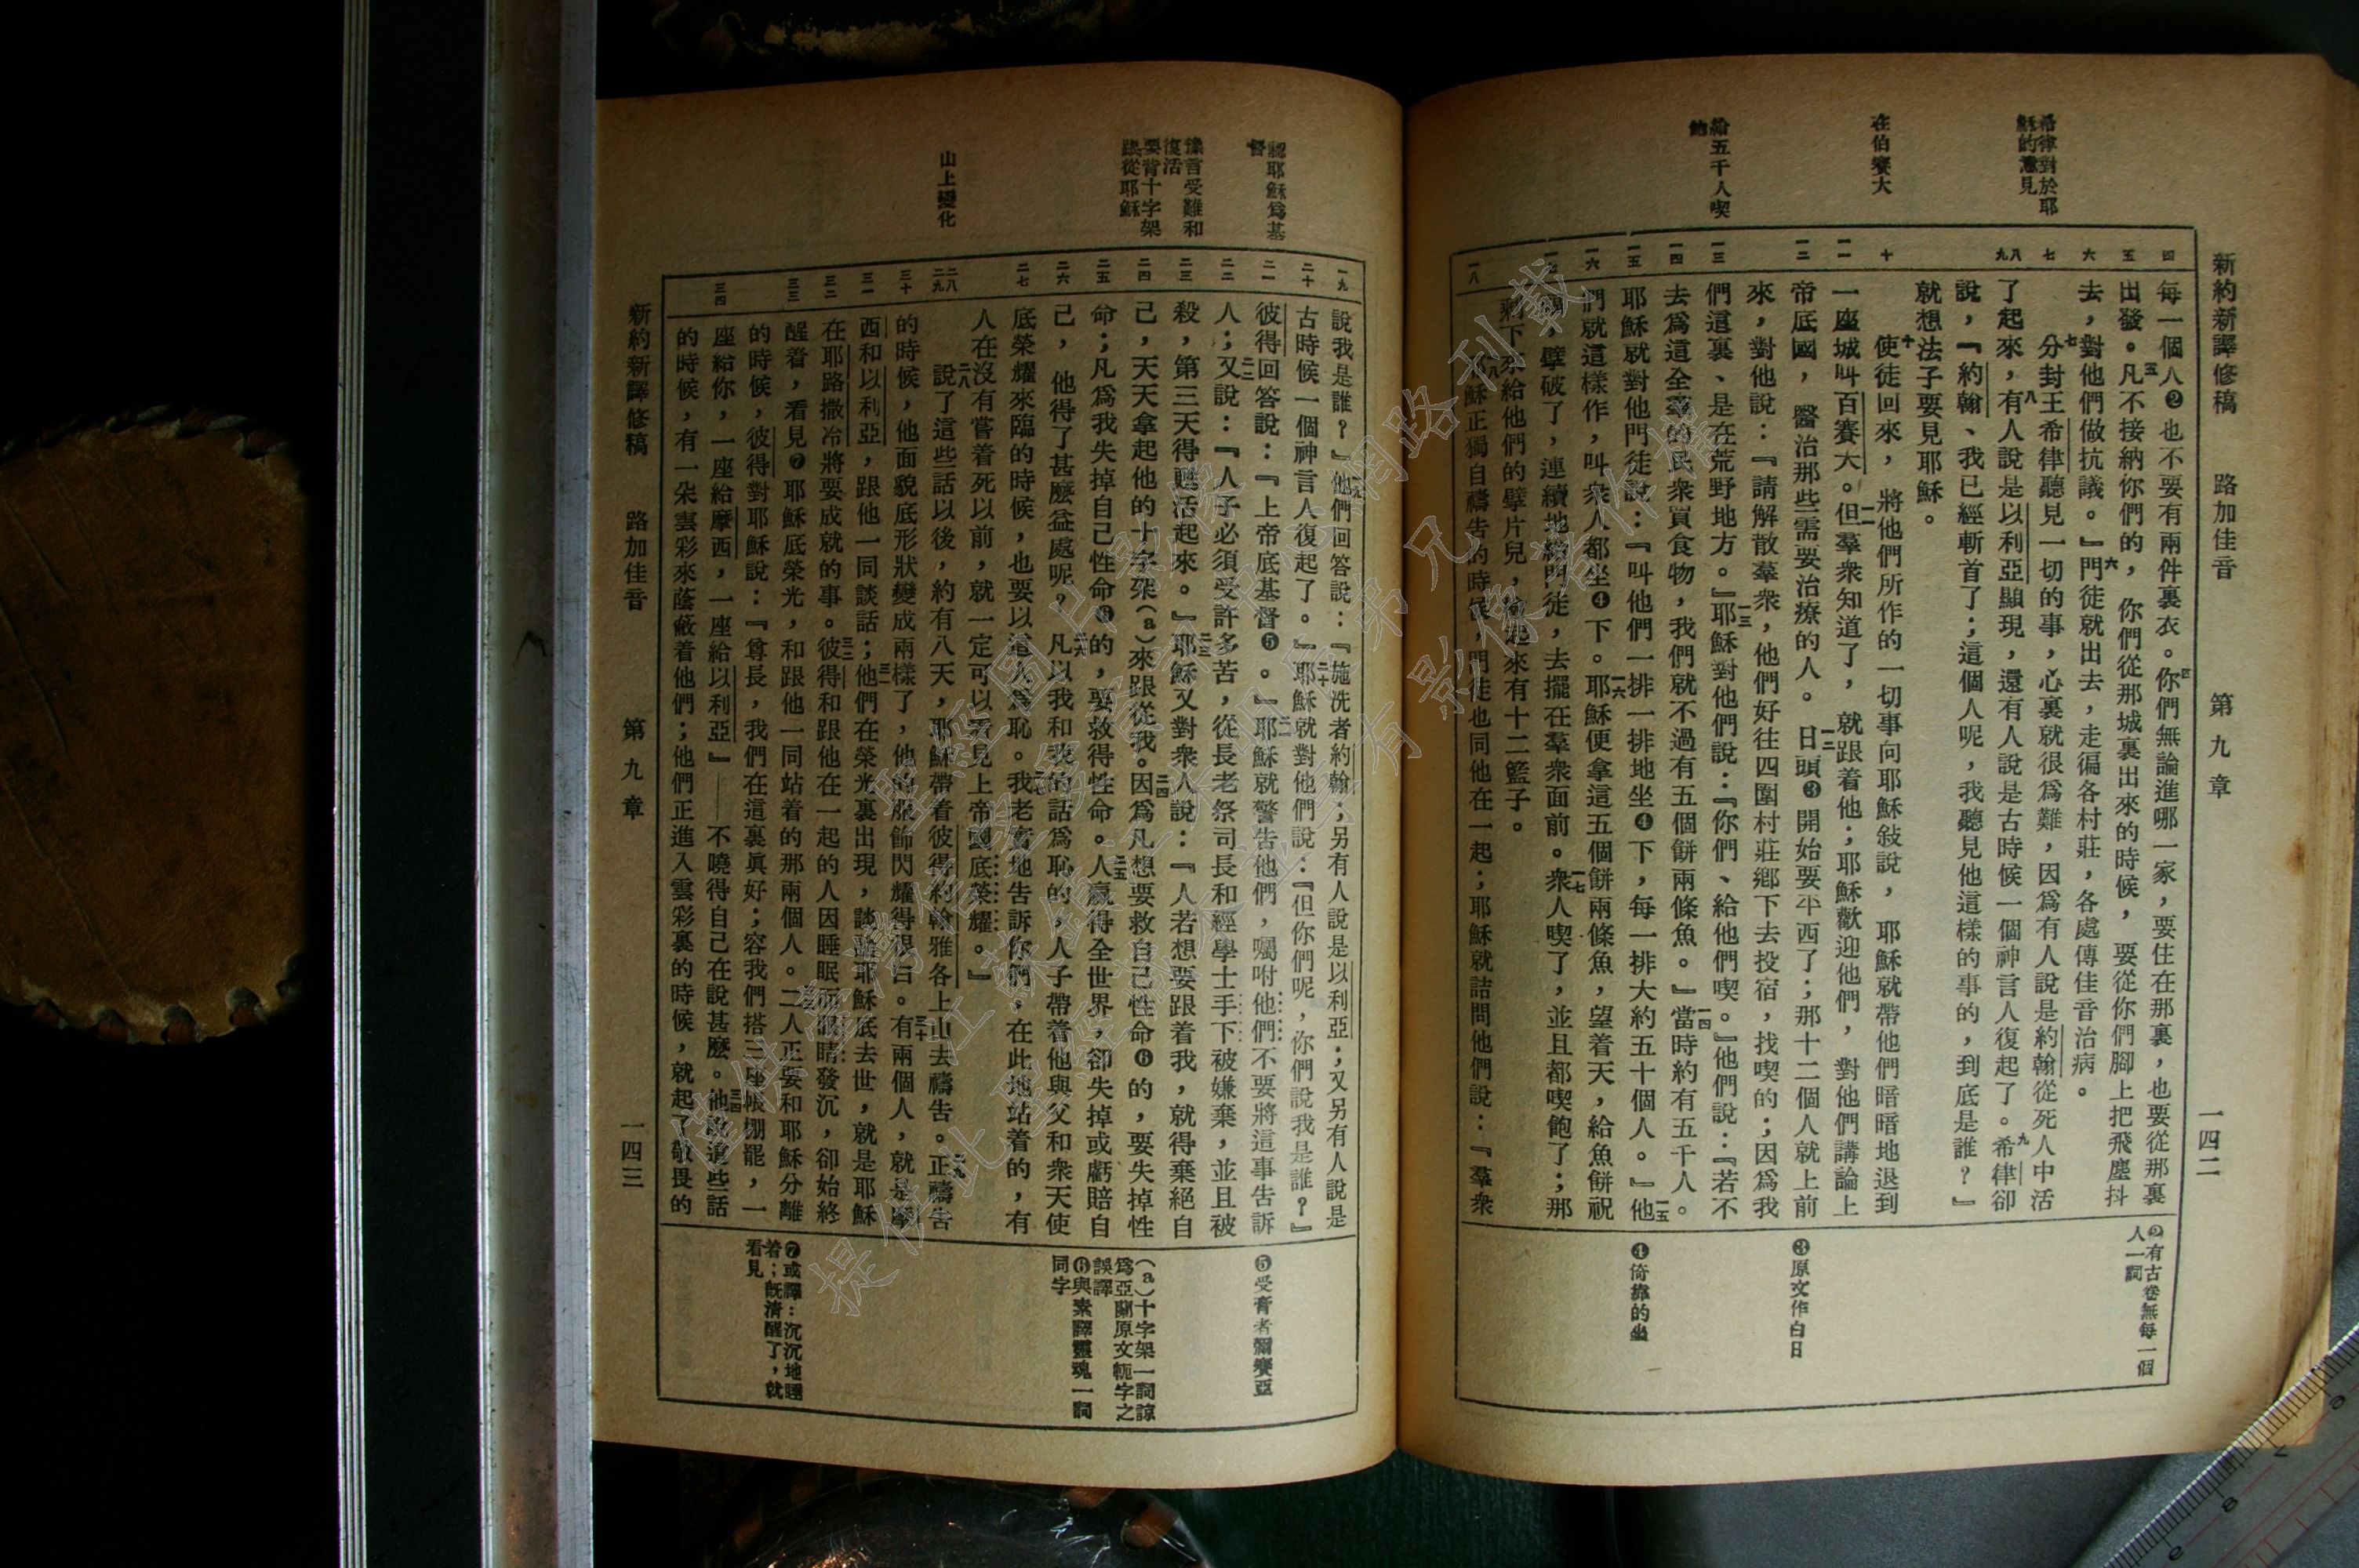 新約新譯修稿　路加佳音　第九章　一四二
希律對於耶
穌的意見
在伯賽大
給五千人喫
飽
四
五
六
七
八
九
十
一一
一二
一三
一四
一五
一六
一八
每一個人❷也不要有兩件裏衣。四你們無論進哪一家，要住在那裏，也要從那裏
出發。五凡不接納你們的，你們從那城裏出來的時候，要從你們腳上把飛塵抖
去，對他們做抗議。』六門徒就出去，走徧各村莊，各處傳佳音治病。
七分封王希律聽見一切的事，心裏就很爲難，因爲有人說是約翰從死人中活
了起來，八有人說是以利亞顯現，還有人說是古時候一個神言人復起了。九希律卻
說，『約翰、我已經斬首了；這個人呢，我聽見他這樣的事的，到底是誰？』
就想法子要見耶穌。
十使徒回來，將他們所作的一切事向耶穌敍說，耶穌就帶他們暗暗地退到
一座城叫百賽大。一一但羣衆知道了，就跟着他；耶穌歡迎他們，對他們講論上
帝底國，醫治那些需要治療的人。一二日頭❸開始要平西了；那十二個人就上前
來，對他說：『請解散羣衆，他們好往四圍村莊鄉下去投宿，找喫的；因爲我
們這裏、是在荒野地方。』一三耶穌對他們說：『你們、給他們喫。』他們說：『若不
去爲這全羣的民衆買食物，我們就不過有五個餅兩條魚。』一四當時約有五千人。
耶穌就對他門徒說：『叫他們一排一排地坐❹下，每一排大約五十個人。』一五他
們就這樣作，叫衆人都坐❹下。一六耶穌便拿這五個餅兩條魚，望着天，給魚餅祝
，擘破了，連續地給門徒，去擺在羣衆面前。一七衆人喫了，並且都喫飽了；那
剩下來給他們的擘片兒，起來有十二籃子。
一八耶穌正獨自禱告的時候，門徒也同他在一起；耶穌就詰問他們說：『羣衆
❷有古卷無每一個
人一詞
❸原文作白日
❹倚靠的坐
認耶穌爲基
督
豫言受難和
復活
要背十字架
跟從耶穌
山上變化
一九
二十
二一
二二
二三
二四
二五
二六
二七
二八
二九
三十
三一
三二
三三
三四
說我是誰？』一九他們回答說：『施洗者約翰；另有人說是以利亞；又另有人說是
古時候一個神言人復起了。』二十耶穌就對他們說：『但你們呢，你們說我是誰？』
彼得回答說：『上帝底基督❺。』二一耶穌就警告他們，囑咐他們不要將這事告訴
人；二二又說：『人子必須受許多苦，從長老祭司長和經學士手下被嫌棄，並且被
殺，第三天得甦活起來。』二三耶穌又對衆人說：『人若想要跟着我，就得棄絕自
己，天天拿起他的十字架（a）來跟從我。二四因爲凡想要救自己性命❻的，要失掉性
命；凡爲我失掉自己性命❻的，要救得性命。二五人贏得全世界，卻失掉或虧賠自
己，他得了甚麼益處呢？二六凡以我和我的話爲恥的，人子帶着他與父和衆天使
底榮耀來臨的時候，也要以這人爲恥。二七我老實地告訴你們，在此地站着的，有
人在沒有嘗着死以前，就一定可以看見上帝國底榮耀。』
二八說了這些話以後，約有八天，耶穌帶着彼得約翰雅各上山去禱告。二九正禱告
的時候，他面貌底形狀變成兩樣了，他的服飾閃耀得很白。三十有兩個人，就是摩
西和以利亞，跟他一同談話；三一他們在榮光裏出現，談論耶穌底去世，就是耶穌
在耶路撒冷將要成就的事。三二彼得和跟他在一起的人因睡眠而眼睛發沉，卻始終
醒着，看見❼耶穌底榮光，和跟他一同站着的那兩個人。三三二人正要和耶穌分離
的時候，彼得對耶穌說：『尊長，我們在這裏眞好；容我們搭三座帳棚罷，一
座給你，一座給摩西，一座給以利亞』——不曉得自己在說甚麼。三四他說這些話
的時候，有一朵雲彩來蔭蔽着他們；他們正進入雲彩裏的時候，就起了敬畏的
❺受膏者彌賽亞
（a）十字架一詞諒
爲亞蘭原文軛字之
誤譯
❻與素譯靈魂一詞
同字
❼或譯：沉沉地睡
着；旣清醒了，就
看見
新約新譯修稿　路加佳音　第九章　一四三